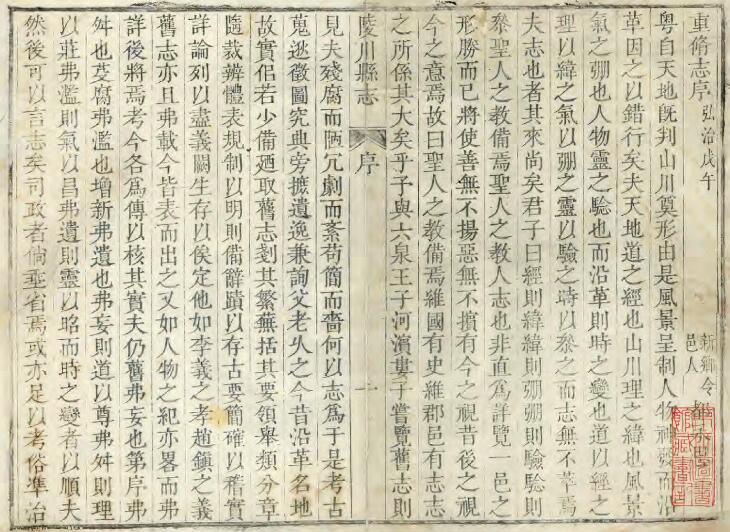 重脩志序 弘治戊午 新鄉令 邑人
粤自天地旣判山川奠形由是風景呈制人物
革因之以錯行矣夫天地道之經也山川理之緯也風景
氣之弸也人物靈之驗也而沿革則時之變也道以經之
理以緯之氣以弸之靈以驗之時以叅之而志無不萃焉
夫志也者其來尚矣君子曰經則緯緯則弸弸則驗驗則
叅聖人之教備焉聖人之教人志也非直爲詳覽一邑之
形勝而已將使善無不揚惡無不擯有今之視昔後之視
今之意焉故曰聖人之教備焉維國有史維郡邑有志志
之所係其大矣乎予與六泉王子河濱婁子嘗覽舊志則
陵川縣志 序 一
見夫殘腐而陋冗劇而紊苟簡而嗇何以志爲于是考古
蒐逖徵圖究典旁摭遺逸兼詢父老乆之今昔沿革名地
故實佀若少備廼取舊志剗其繁蕪括其要領舉類分章
隨裁辨體表規制以明則備辭蹟以存古要簡確以稽實
詳論列以盡義闕生存以俟定他如李義之孝趙鎮之義
舊志亦且弗載今皆表而出之又如人物之紀亦畧而弗
詳後將焉考今各爲傳以核其實夫仍舊弗妄也第序弗
舛也芟腐弗濫也增新弗遺也弗妄則道以尊弗舛則理
以莊弗濫則氣以昌弗遺則靈以昭而時之變者以順夫
然後可以言志矣司政者倘垂省焉或亦足以考俗凖治